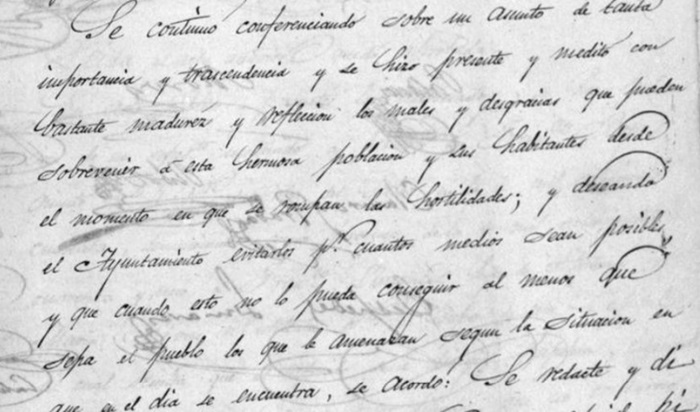 Se continuo conferenciando sobre un asunto de tanta
importancia y trascendencia y se hizo presente y meditó con
bastante madurez y refleccion los males y desgracias que pueden
sobrevenir á esta hermosa poblacion y sus habitantes desde
el momento en que se rompan las hostilidades; y deseando
el Ayuntamiento evitarlos pr. cuantos medios sean posibles,
y que cuando esto no lo pueda conseguir al menos que
sepa el pueblo los que le amenazan segun la situacion en
que en el dia se encuentra, se acordó: Se redacte y di-